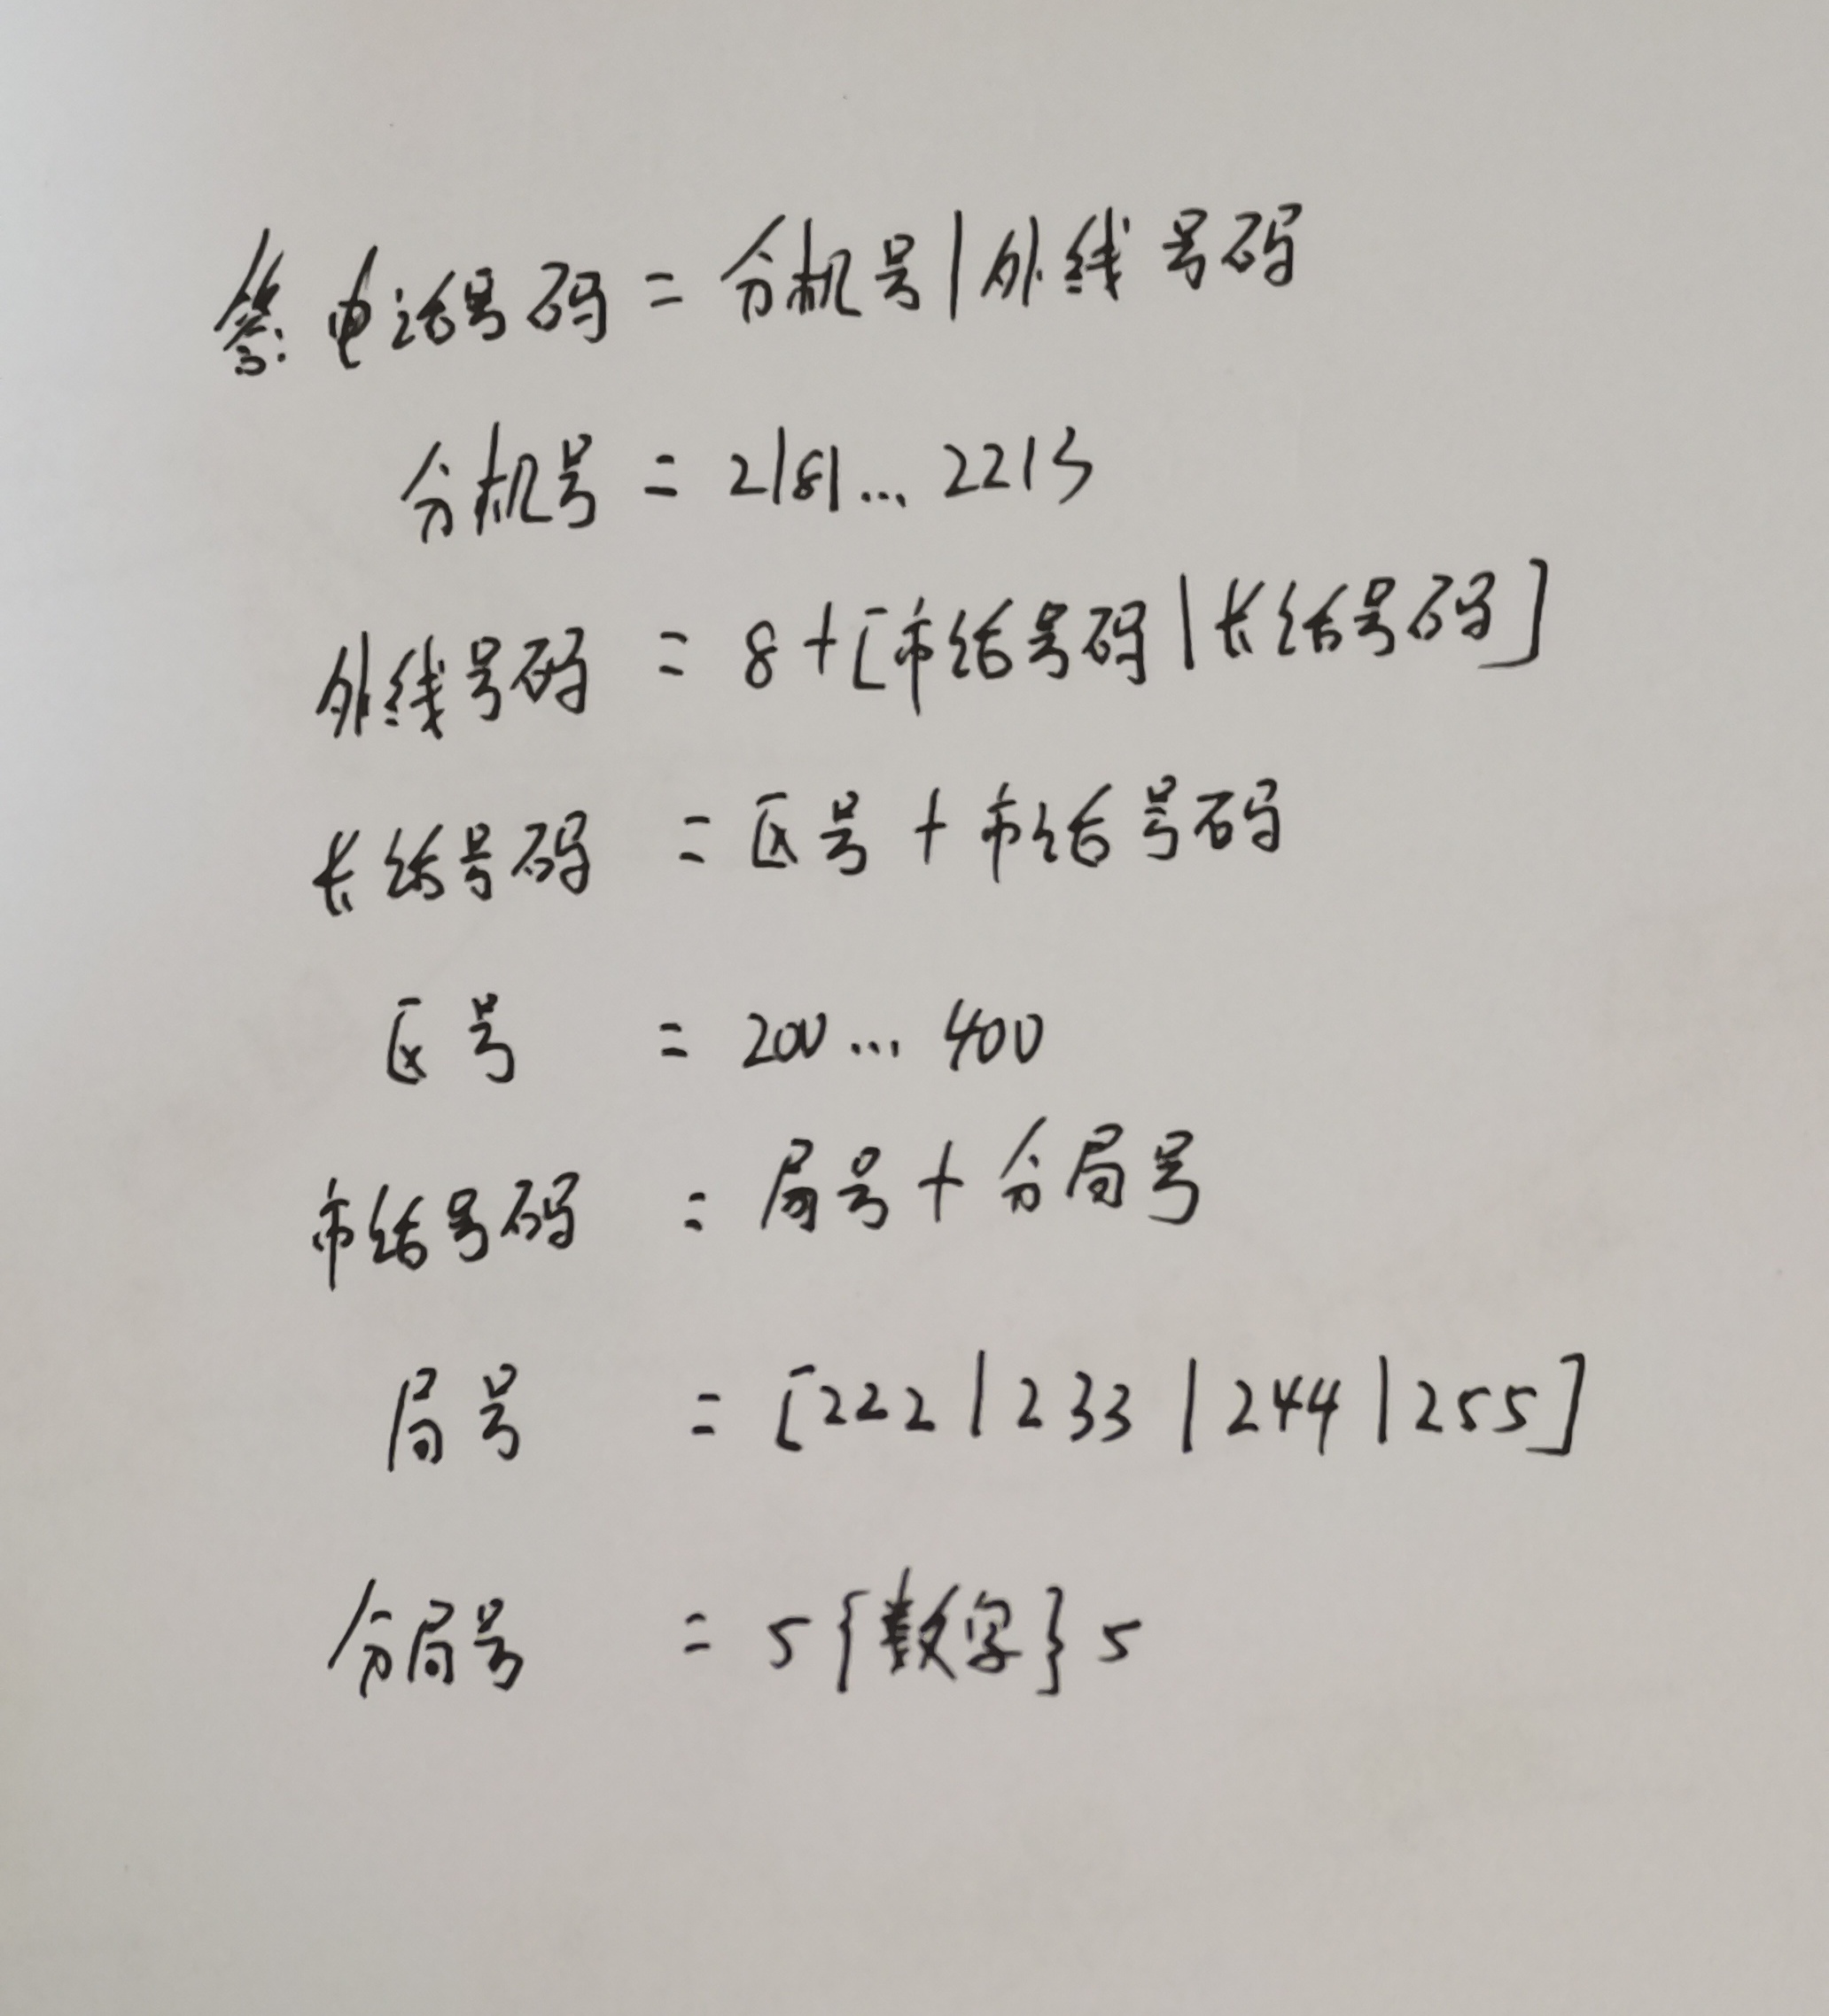 答: 电话号码 = 分机号 | 外线号码
分机号 = 2181... 2213
外线号码 = 8 + [市话号码 | 长话号码]
长话号码 = 区号 + 市话号码
区号 = 200 ... 400
市话号码 = 局号 + 分局号
局号 = [222 | 233 | 244 | 255]
分局号 = 5{数字}5